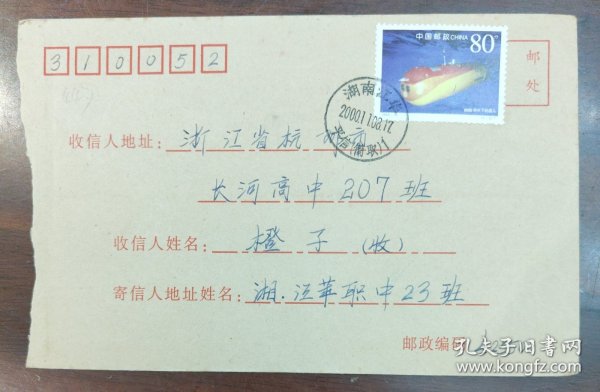 中国邮政 CHINA 80分
310052
邮
处
湖南江华
2000.11.08.17
收信人地址：浙江省杭州市
长河高中207班
收信人姓名：橙子（收）
寄信人地址姓名：湘.江华职中23班
邮政编码
孔夫子旧书网
www.kongfz.com